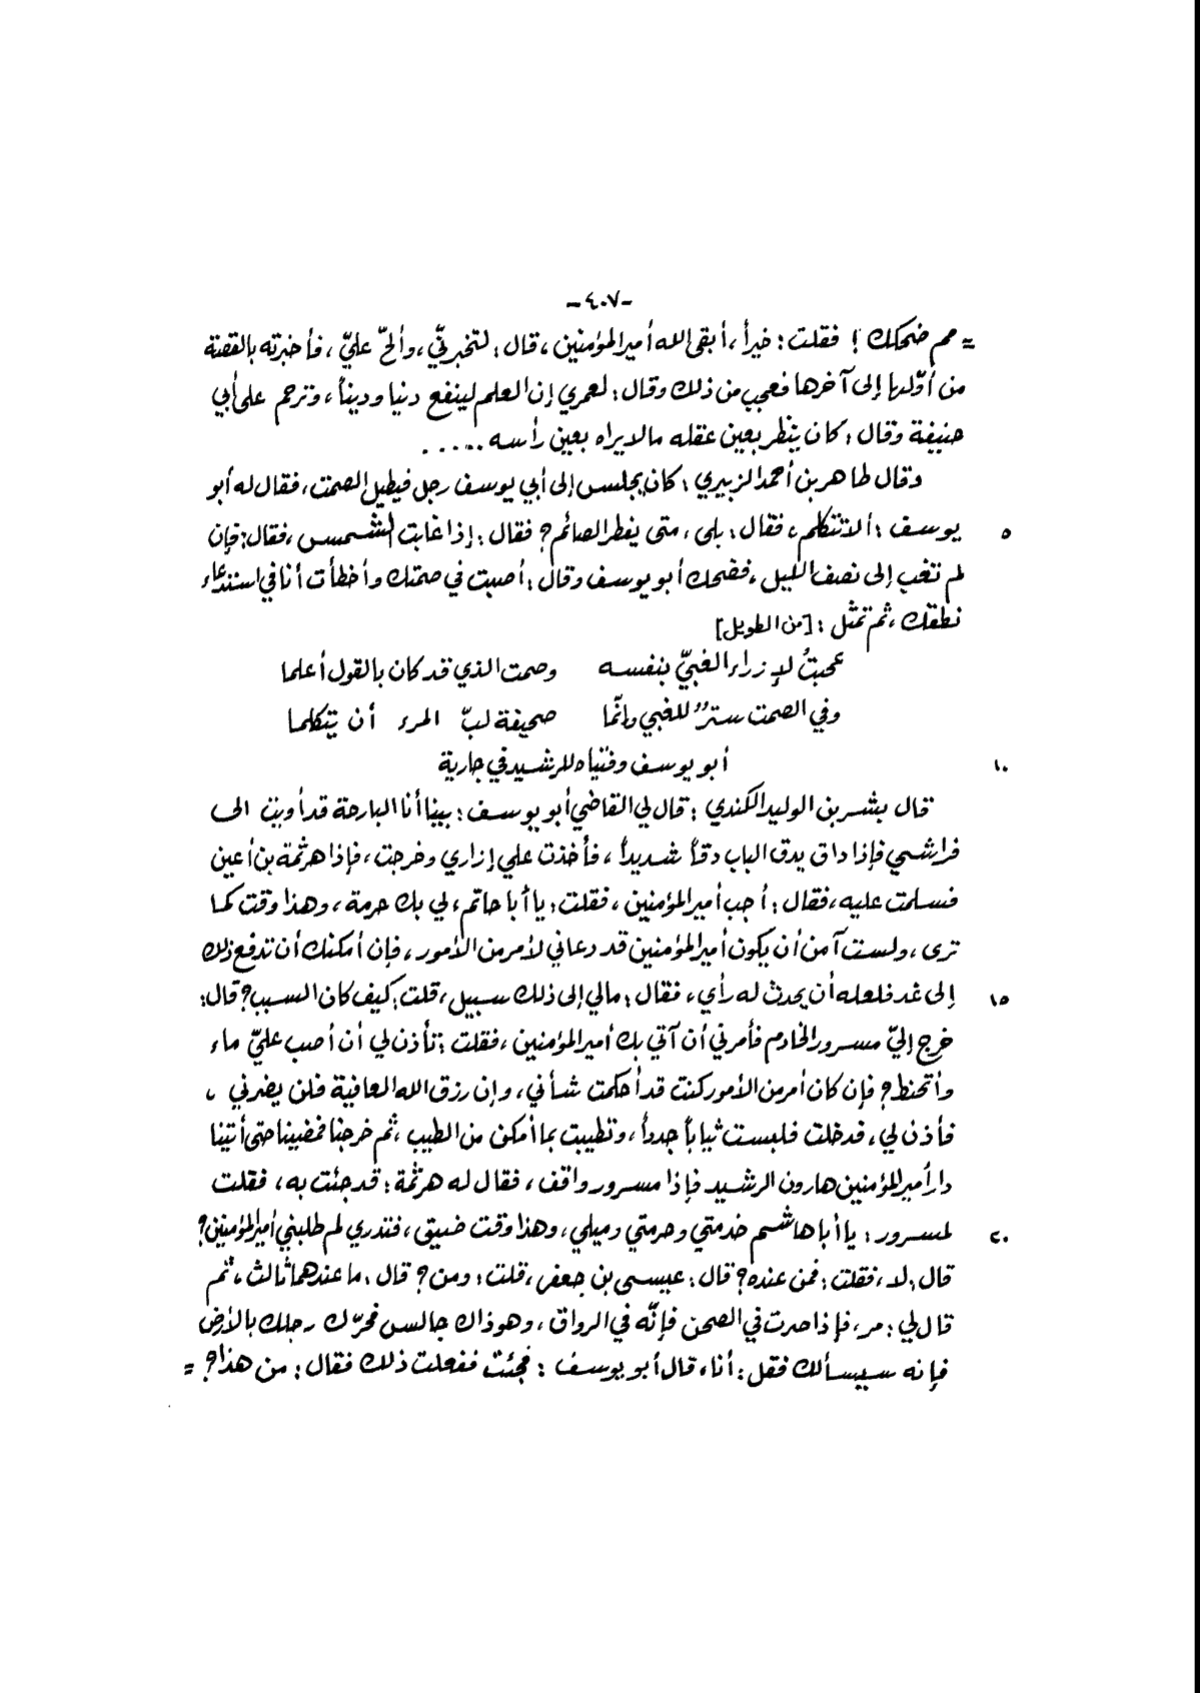 -٤٠٧-
= مم ضحكك ! فقلت : خيراً ، أبقى الله أمير المؤمنين ، قال : لتخبرنّي ، وألحّ عليّ ، فأخبرته بالقصة
من أوّلها إلى آخرها فعجب من ذلك وقال : لعمري إن العلم لينفع دنيا وديناً ، وترحم على أبي
حنيفة وقال : كان ينظر بعين عقله مالا يراه بعين رأسه .....
وقال طاهر بن أحمد الزبيري : كان يجلس إلى أبي يوسف رجل فيطيل الصمت ، فقال له أبو
٥ يوسف : ألا تتكلم ، فقال : بلى ، متى يفطر الصائم ؟ فقال : إذا غابت الشمس ، فقال : فإن
لم تغب إلى نصف الليل ، فضحك أبو يوسف وقال : أصبت في صمتك وأخطأت أنا في استدعاء
نطقك ، ثم تمثّل : [من الطويل]
عجبتُ لإزراء الغبيّ بنفسه وصمت الذي قد كان بالقول أعلما
وفي الصمت سترٌ للغبي وإنّما صحيفة لبّ المرء أن يتكلما
١٠ أبو يوسف وفتياه للرشيد في جارية
قال بشر بن الوليد الكندي : قال لي القاضي أبو يوسف : بينا أنا البارحة قد أويت إلى
فراشي فإذا داق يدق الباب دقاً شديداً ، فأخذت علي إزاري وخرجت ، فإذا هرثمة بن أعين
فسلمت عليه ، فقال : أجب أمير المؤمنين ، فقلت : يا أبا حاتم ، لي بك حرمة ، وهذا وقت كما
ترى ، ولست آمن أن يكون أمير المؤمنين قد دعاني لأمر من الأمور ، فإن أمكنك أن تدفع ذلك
١٥ إلى غد فلعله أن يحدث له رأي ، فقال : مالي إلى ذلك سبيل ، قلت : كيف كان السبب ؟ قال :
خرج إليّ مسرور الخادم فأمرني أن آتي بك أمير المؤمنين ، فقلت : تأذن لي أن أصب عليّ ماء
وأتحنط ؟ فإن كان أمر من الأمور كنت قد أحكمت شأني ، وإن رزق الله العافية فلن يضرني ،
فأذن لي ، فدخلت فلبست ثياباً جدداً ، وتطيبت بما أمكن من الطيب ، ثم خرجنا فمضينا حتى أتينا
دار أمير المؤمنين هارون الرشيد فإذا مسرور واقف ، فقال له هرثمة : قد جئت به ، فقلت
٢٠ لمسرور : يا أبا هاشم خدمتي وحرمتي وميلي ، وهذا وقت ضيق ، فتدري لم طلبني أمير المؤمنين ؟
قال : لا ، فقلت : فمن عنده ؟ قال : عيسى بن جعفر ، قلت : ومن ؟ قال : ما عندهما ثالث ، ثم
قال لي : مر ، فإذا صرت في الصحن فإنّه في الرواق ، وهو ذاك جالس فحرّك رجلك بالأرض
فإنه سيسألك فقل : أنا ، قال أبو يوسف : فجئت ففعلت ذلك فقال : من هذا ؟ =